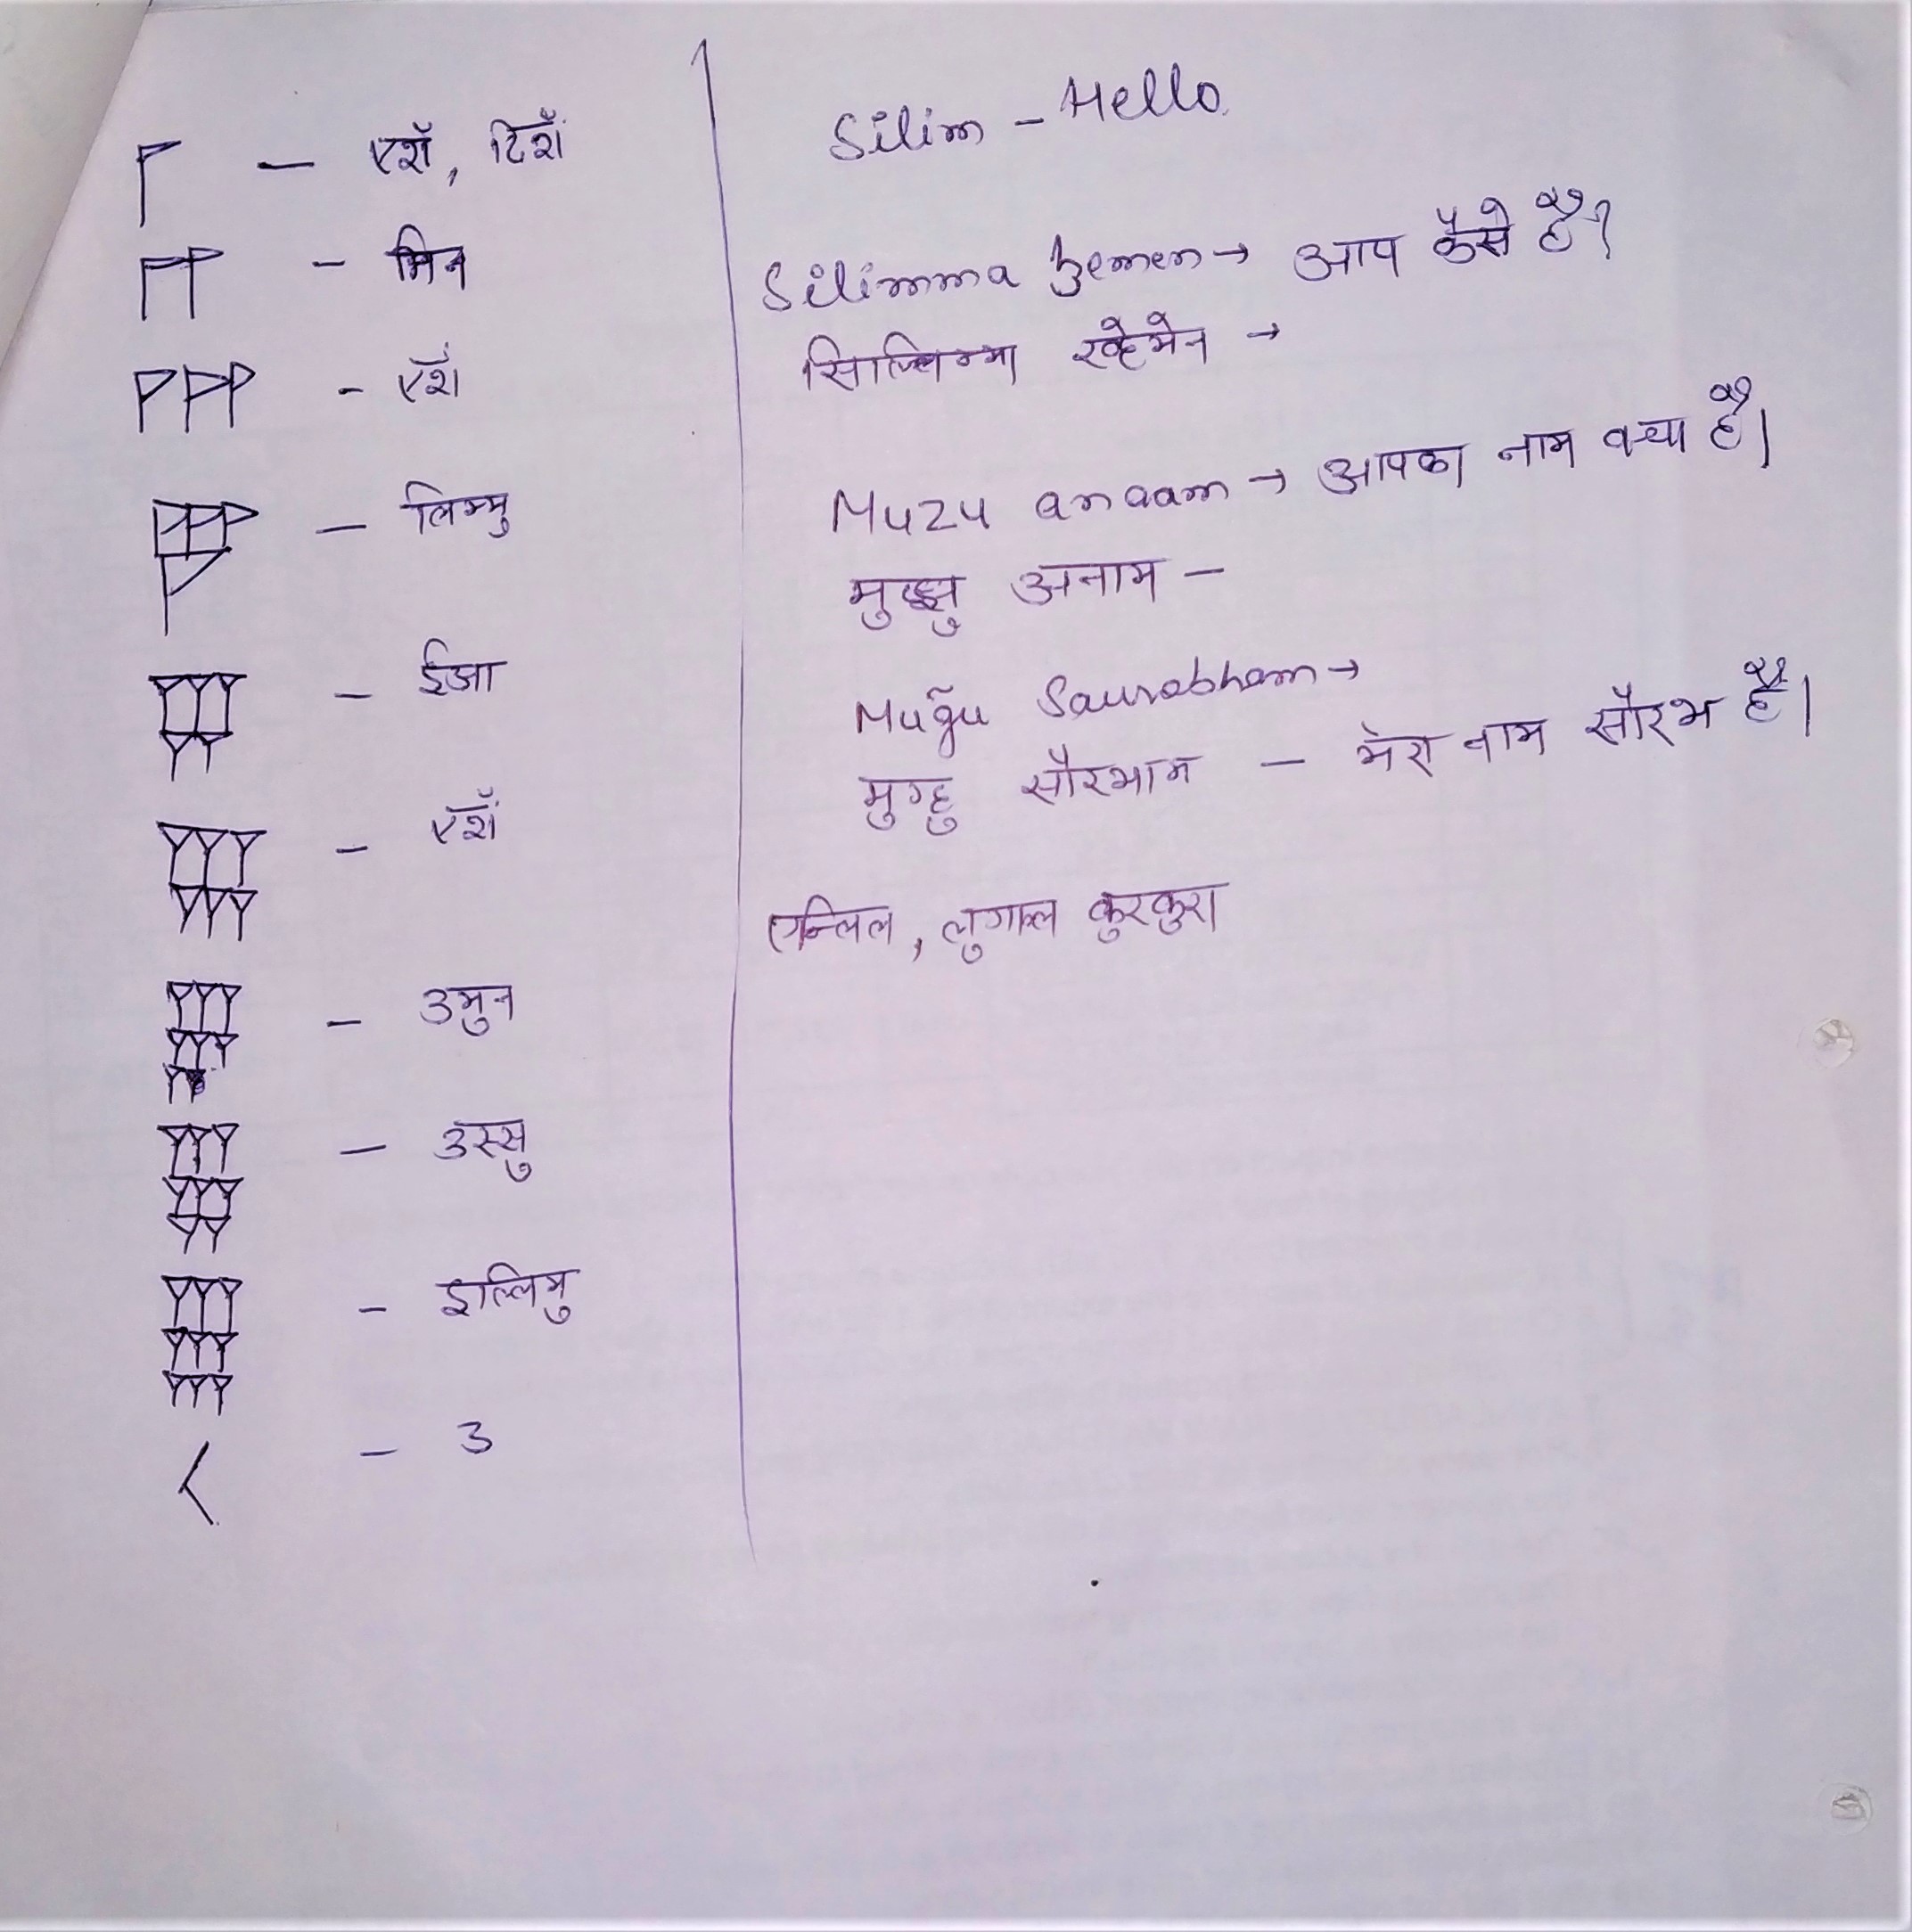 𒁹 — एशॅ, टिशॅ
𒈫 — मिन
𒐈 - एशॅ
𒐉 — लिम्मु
𒐊 — ईआ
𒐋 — एशॅ
𒐌 — उमुन
𒐍 — उस्सु
𒐎 — इल्लिमु
𒌋 — उ
Silim - Hello
Silimma → आप कैसे है?
सिल्लिम्मा →
Muzu anaam → आपका नाम क्या है।
अनाम —
Mug̃u Saurabham →
मुग्हु सौरभाम — मेरा नाम सौरभ हैं।
एन्लिल, लुगाल कुरकुरा